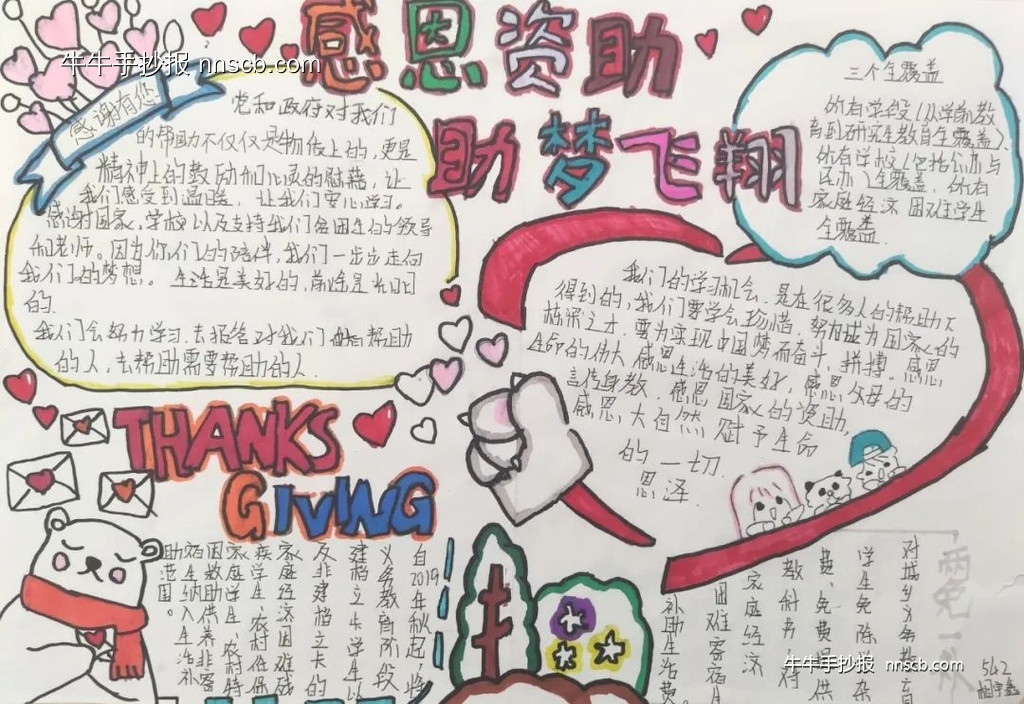 感恩资助
助梦飞翔
牛牛手抄报 nnscb.com
感谢有您
党和政府对我们
的帮助不仅仅是物质上的,更是
精神上的鼓励和心灵的慰藉,让
我们感受到温暖,让我们安心学习。
感谢国家、学校以及支持我们贫困生的领导
和老师。因为你们的陪伴,我们一步步走向
我们的梦想。生活是美好的,前途是光明
的.
我们会努力学习,去报答对我们帮助
的人,去帮助需要帮助的人.
三个全覆盖
所有学段(从学前教
育到研究生教育全覆盖)、
所有学校(包括公办与
民办)全覆盖、所有
家庭经济困难学生
全覆盖.
我们的学习机会,是在很多人的帮助下
得到的,我们要学会珍惜,努力成为国家的
栋梁之才,要为实现中国梦而奋斗、拼搏。感恩
生命的伟大,感恩生活的美好,感恩父母的
言传身教,感恩国家的资助,
感恩大自然赋予生命
的一切
恩泽.
THANKS
GIVING
自2019年秋起,将
义务教育阶段
建档立卡学生以
及非建档立卡的
家庭经济困难残
疾学生、农村低保
家庭学生、农村特
困救助供养非寄
宿生纳入生活补
助范围。
两免一补
对城乡义务教育
学生免除学杂
费、免费提供
教科书,对
家庭经济
困难寄宿生
补助生活费。
牛牛手抄报 nnscb.com
562